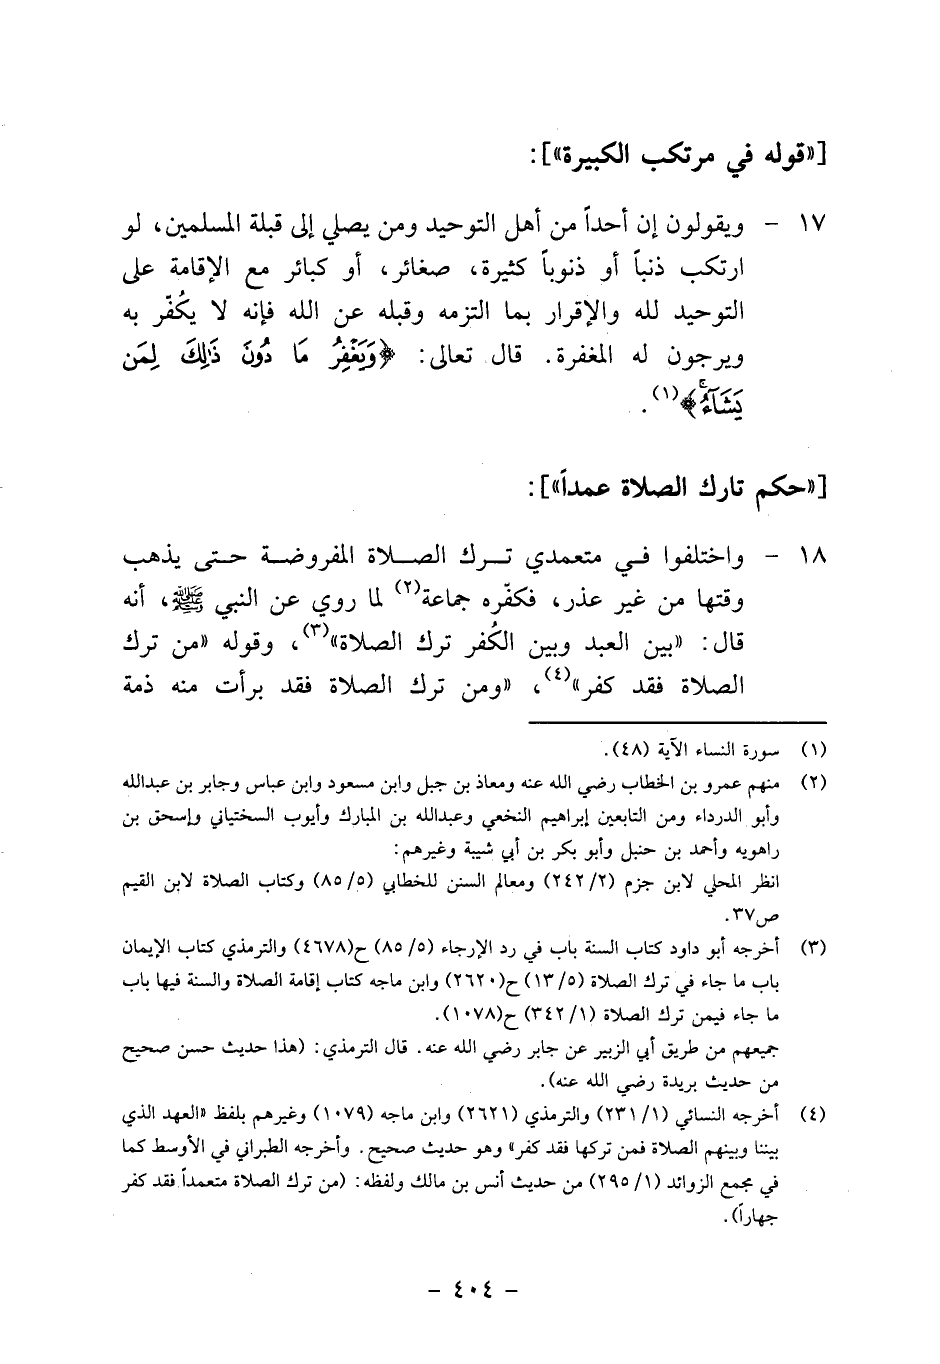 [«قوله في مرتكب الكبيرة»]:
١٧ - ويقولون إن أحداً من أهل التوحيد ومن يصلي إلى قبلة المسلمين، لو
ارتكب ذنباً أو ذنوباً كثيرة، صغائر، أو كبائر مع الإقامة على
التوحيد لله والإقرار بما التزمه وقبله عن الله فإنه لا يكُفّر به
ويرجون له المغفرة. قال تعالى: ﴿وَيَغْفِرُ مَا دُونَ ذَٰلِكَ لِمَن
يَشَآءُۚ﴾(١).
[«حكم تارك الصلاة عمداً»]:
١٨ - واختلفوا في متعمدي ترك الصلاة المفروضة حتى يذهب
وقتها من غير عذر، فكفّره جماعة(٢) لما روي عن النبي ﷺ، أنه
قال: «بين العبد وبين الكُفر ترك الصلاة»(٣)، وقوله «من ترك
الصلاة فقد كفر»(٤)، «ومن ترك الصلاة فقد برأت منه ذمة
(١) سورة النساء الآية (٤٨).
(٢) منهم عمرو بن الخطاب رضي الله عنه ومعاذ بن جبل وابن مسعود وابن عباس وجابر بن عبدالله
وأبو الدرداء ومن التابعين إبراهيم النخعي وعبدالله بن المبارك وأيوب السختياني وإسحق بن
راهويه وأحمد بن حنبل وأبو بكر بن أبي شيبة وغيرهم:
انظر المحلي لابن جزم (٢/ ٢٤٢) ومعالم السنن للخطابي (٥/ ٨٥) وكتاب الصلاة لابن القيم
ص٣٧.
(٣) أخرجه أبو داود كتاب السنة باب في رد الإرجاء (٥/ ٨٥) ح(٤٦٧٨) والترمذي كتاب الإيمان
باب ما جاء في ترك الصلاة (٥/ ١٣) ح(٢٦٢٠) وابن ماجه كتاب إقامة الصلاة والسنة فيها باب
ما جاء فيمن ترك الصلاة (١/ ٣٤٢) ح(١٠٧٨).
جميعهم من طريق أبي الزبير عن جابر رضي الله عنه. قال الترمذي: (هذا حديث حسن صحيح
من حديث بريدة رضي الله عنه).
(٤) أخرجه النسائي (١/ ٢٣١) والترمذي (٢٦٢١) وابن ماجه (١٠٧٩) وغيرهم بلفظ «العهد الذي
بيننا وبينهم الصلاة فمن تركها فقد كفر» وهو حديث صحيح. وأخرجه الطبراني في الأوسط كما
في مجمع الزوائد (١/ ٢٩٥) من حديث أنس بن مالك ولفظه: (من ترك الصلاة متعمداً فقد كفر
جهاراً).
- ٤٠٤ -